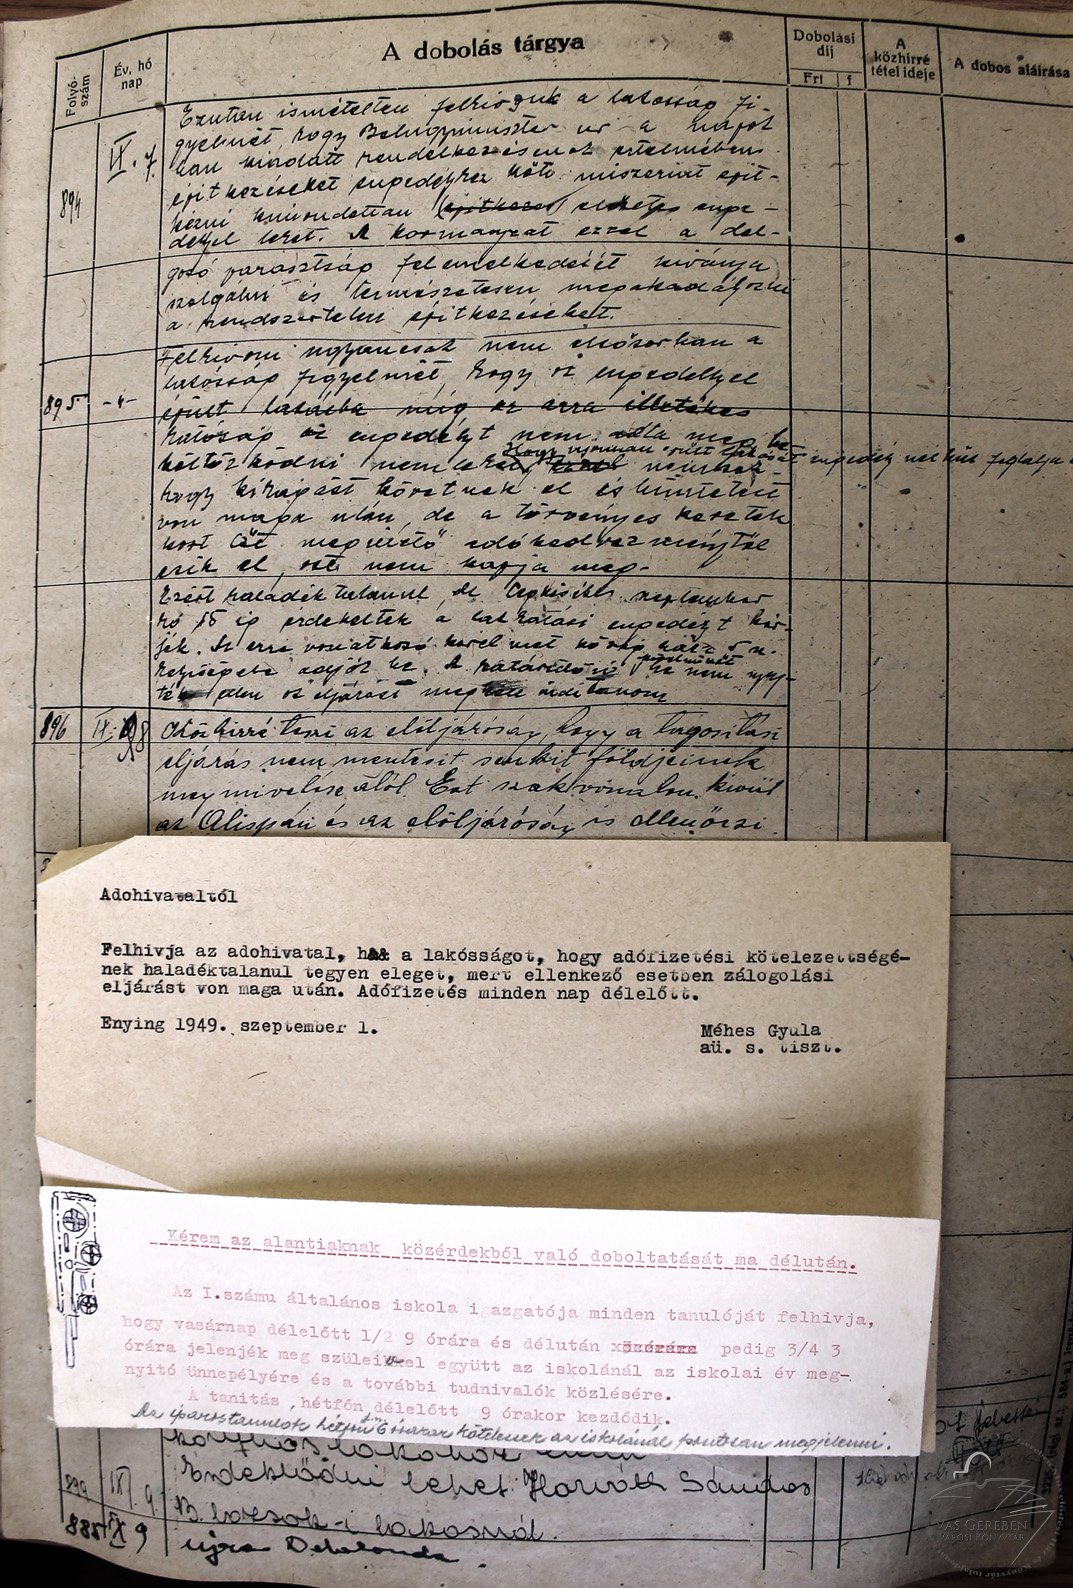 Folyó-
szám
Év, hó
nap
A dobolás tárgya
Dobolási
díj
Frt f
A
közhirré
tétel ideje
A dobos aláírása
894
IX. 7.
Ezután ismételten felhivjuk a lakosság fi-
gyelmét, hogy Belügyminiszter ur a
kiadott rendelkezésének értelmében
építkezéseket engedélyhez köti miszerint épít-
kezni kimondottan (építkezés) enge-
déllyel lehet. A kormányzat ezzel a dol-
gozó parasztság felemelkedését kívánja
szolgálni és természetesen megakadályozni
a rendszertelen építkezéseket.
895
-"-
Felhivom ugyancsak nem elsősorban a
lakósság figyelmét, hogy az engedéllyel
épült lakásba míg az arra illetékes
hatóság az engedélyt nem adta meg be
költözködni nem lehet
engedély nélkül foglalja
hogy kihágást követnek el és büntetést
von maga után, de a törvényes keretek
közt őt megillető adókedvezménytől
esik el, azt nem kapja meg.
Ezért haladéktalanul, de legkésőbb szeptember
hó 15 ig érdekeltek a lakhatási engedélyt kér-
jék. Az erre vonatkozó kérelmet község háza 5 sz.
helyiségébe adják be. A határidőig ha nem nyúj-
ták be az eljárást meg kell indítanom
896
IX. 8
Közhirré teszi az elöljáróság, hogy a tagosítási
eljárás nem mentesít senkit földjeinek
megmivelése alól. Ezt szakvonalon kívül
az Alispán és az elöljáróság is ellenőrzi.
Adohivataltól
Felhivja az adohivatal, a lakósságot, hogy adófizetési kötelezettségé-
nek haladéktalanul tegyen eleget, mert ellenkező esetben zálogolási
eljárást von maga után. Adófizetés minden nap délelőtt.
Enying 1949. szeptember 1.
Méhes Gyula
aü. s. tiszt.
Kérem az alantiaknak közérdekből való doboltatását ma délután.
Az I.számu általános iskola igazgatója minden tanulóját felhivja,
hogy vasárnap délelőtt 1/2 9 órára és délután pedig 3/4 3
órára jelenjék meg szüleivel együtt az iskolánál az iskolai év meg-
nyitó ünnepélyére és a további tudnivalók közlésére.
A tanitás hétfőn délelőtt 9 órakor kezdődik.
Az iparostanulók hétfőn 6 órakor kötelesek az iskolánál pontosan megjelenni.
899
IX. 9
Érdeklődni lehet Horváth Sándor
B. bozsok-i lakosnál.
885
IX 9
újra Dobolandó.
VAS GEREBEN
VÁROSI KÖNYVTÁR